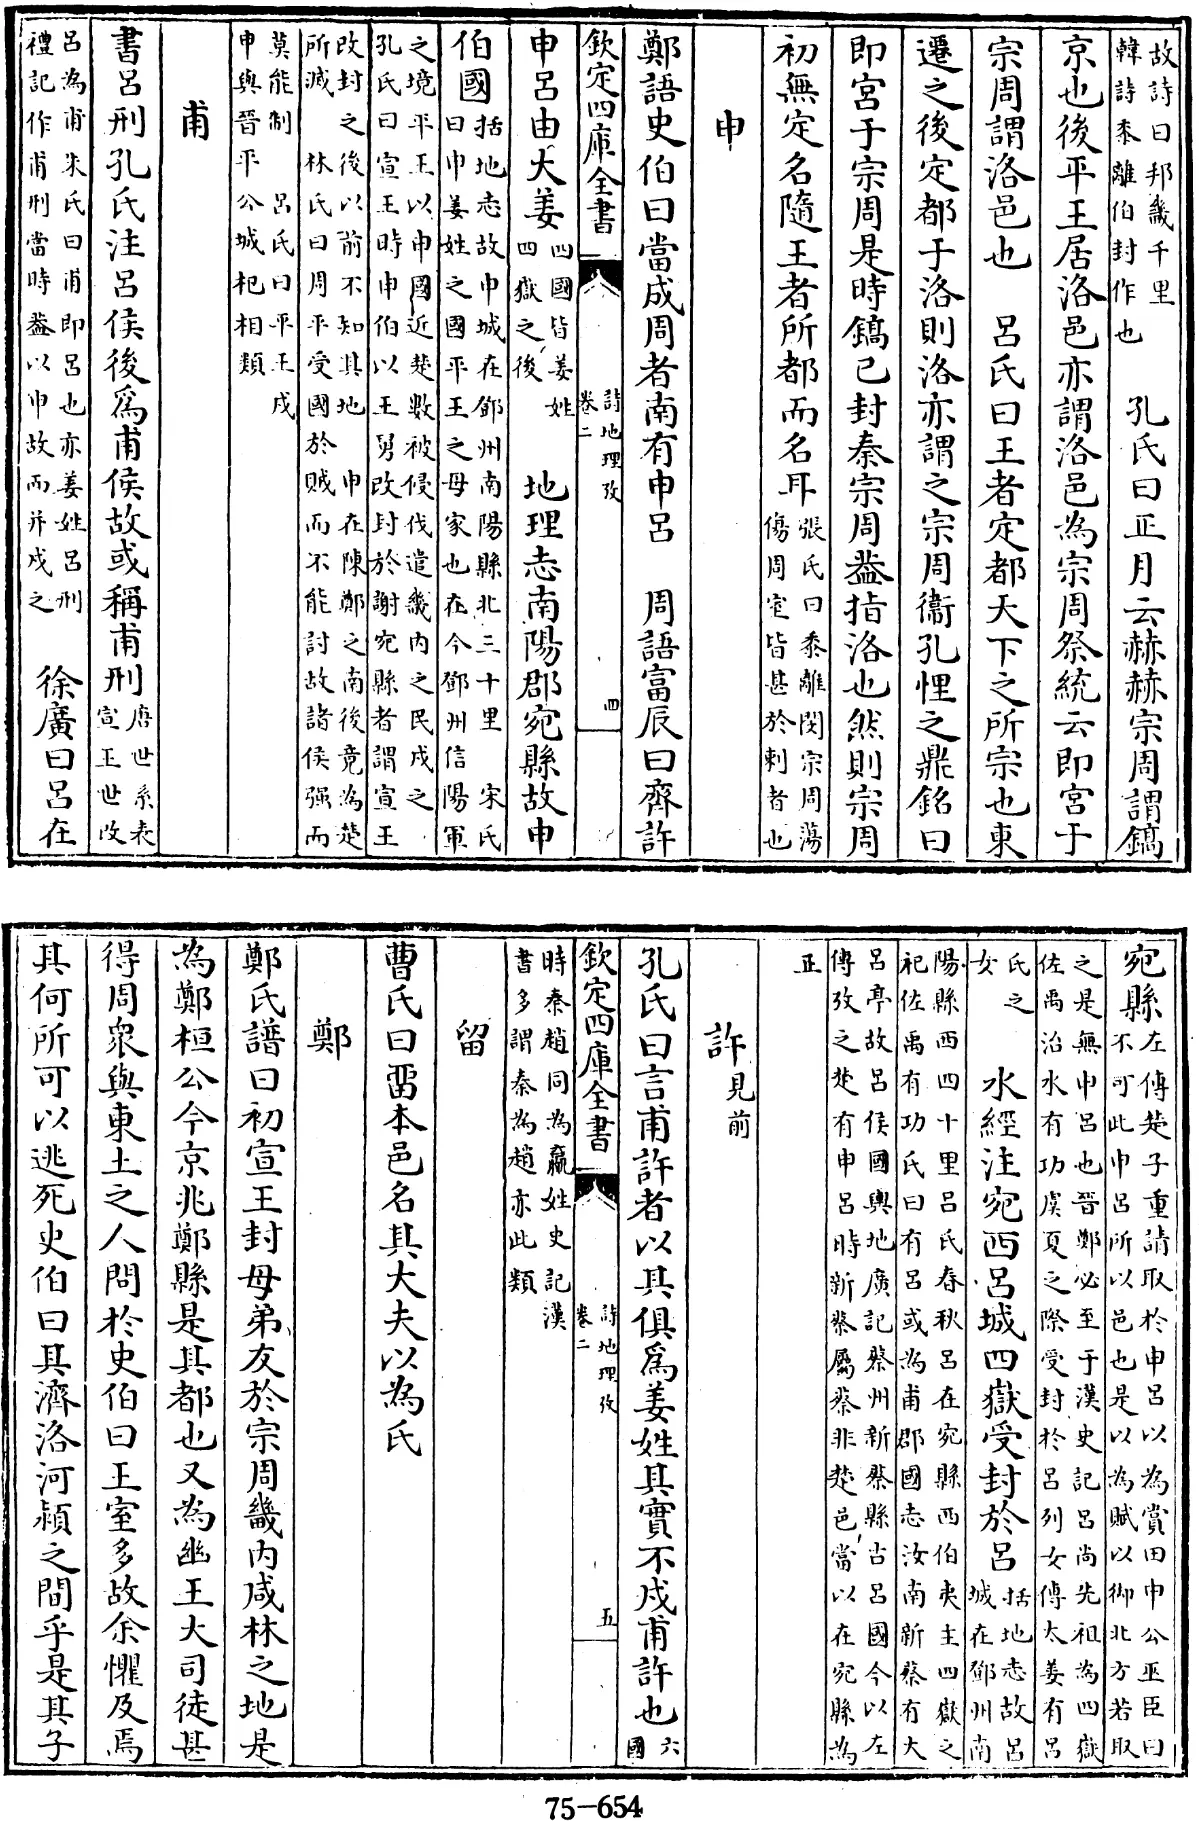 故詩曰邦畿千里
韓詩黍離伯封作也
孔氏曰正月云赫赫宗周謂鎬
京也後平王居洛邑亦謂洛邑為宗周祭統云即宮于
宗周謂洛邑也 呂氏曰王者定都天下之所宗也東
遷之後定都于洛則洛亦謂之宗周衞孔悝之鼎銘曰
即宮于宗周是時鎬已封秦宗周葢指洛也然則宗周
初無定名隨王者所都而名耳
張氏曰黍離閔宗周蕩
傷周室皆甚於刺者也
申
鄭語史伯曰當成周者南有申呂 周語富辰曰齊許
欽定四庫全書
詩地理攷
卷二
四
申呂由大姜
四國皆姜姓
四嶽之後
地理志南陽郡宛縣故申
伯國
括地志故申城在鄧州南陽縣北三十里 宋氏
曰申姜姓之國平王之母家也在今鄧州信陽軍
之境平王以申國近楚數被侵伐遣畿内之民戍之
孔氏曰宣王時申伯以王舅改封於謝宛縣者謂宣王
改封之後以前不知其地 申在陳鄭之南後竟為楚
所滅 林氏曰周平受國於賊而不能討故諸侯强而
莫能制 呂氏曰平王戍
申與晉平公城杞相類
甫
書呂刑孔氏注呂侯後爲甫侯故或稱甫刑
唐世系表
宣王世改
呂為甫朱氏曰甫即呂也亦姜姓呂刑
禮記作甫刑當時葢以申故而并戍之
徐廣曰呂在
宛縣
左傳楚子重請取於申呂以為賞田申公巫臣曰
不可此申呂所以邑也是以為賦以御北方若取
之是無申呂也晉鄭必至于漢史記呂尚先祖為四嶽
佐禹治水有功虞夏之際受封於呂列女傳大姜有呂
氏之
女
水經注宛西呂城四嶽受封於呂
括地志故呂
城在鄧州南
陽縣西四十里呂氏春秋呂在宛縣西伯夷主四嶽之
祀佐禹有功氏曰有呂或為甫郡國志汝南新蔡有大
呂亭故呂侯國輿地廣記蔡州新蔡縣古呂國今以左
傳攷之楚有申呂時新蔡屬蔡非楚邑當以在宛縣為
正
許見前
孔氏曰言甫許者以其俱爲姜姓其實不戍甫許也
六
國
欽定四庫全書
詩地理攷
卷二
五
時秦趙同為嬴姓史記漢
書多謂秦為趙亦此類
留
曹氏曰畱本邑名其大夫以為氏
鄭
鄭氏譜曰初宣王封母弟友於宗周畿内咸林之地是
為鄭桓公今京兆鄭縣是其都也又為幽王大司徒甚
得周衆與東土之人問於史伯曰王室多故余懼及焉
其何所可以逃死史伯曰其濟洛河潁之間乎是其子
75-654